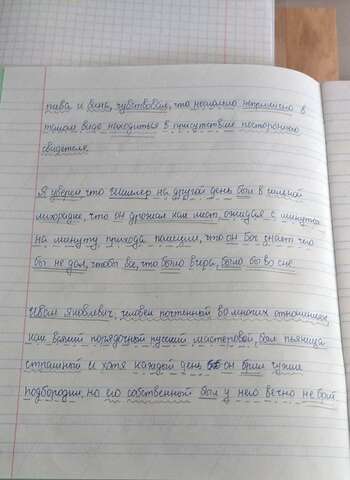 пива и вина, чувствовал, что несколько неприлично в
таком виде находиться в присутствие постороннего
свидетеля.
Я уверен что Шиллер на другой день был в сильной
лихорадке, что он дрожал как лист, ожидая с минуты
на минуту прихода полиции, что он Бог знает что
бы не дал, чтобы все, что было вчера, было бы во сне.
Иван Яковлевич, человек почтенный во многих отношениях,
как всякий порядочный русский мастеровой, был пьяница
страшный и хотя каждый день он брил чужие
подбородки, но его собственной был у него вечно не брит.